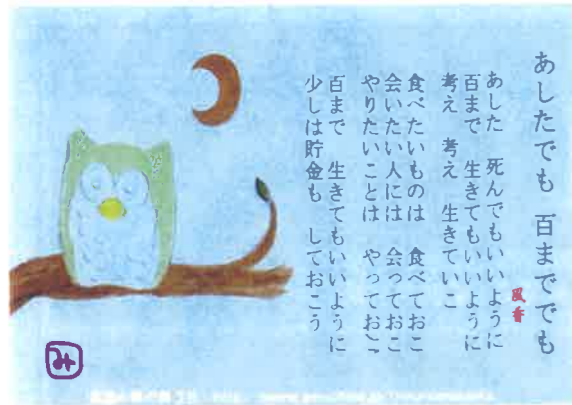 あしたでも 百まででも
風香
あした 死んでもいいように
百まで 生きてもいいように
考え 考え 生きていこ
食べたいものは 食べておこ
会いたい人には 会っておこ
やりたいことは やっておこ
百まで 生きてもいいように
少しは貯金も しておこう
み